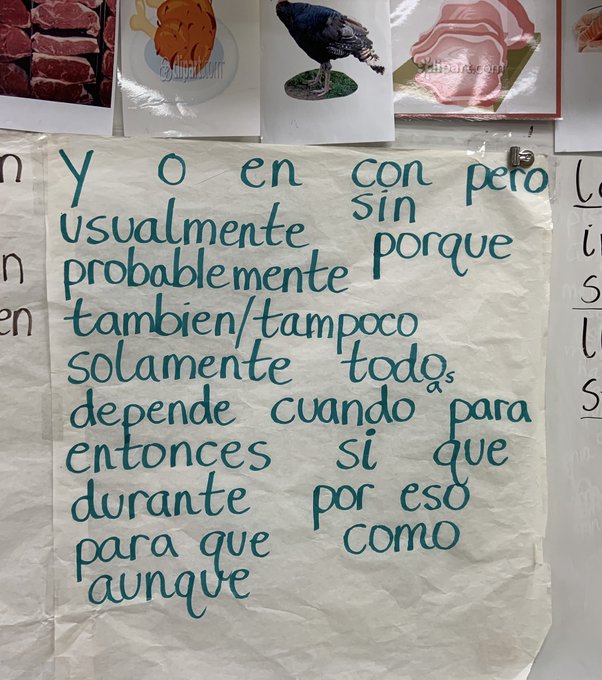 clipart.com
clipart.com
y o en con pero
usualmente sin
probablemente porque
tambien/tampoco
solamente todoas
depende cuando para
entonces si que
durante por eso
para que como
aunque
n
n
en